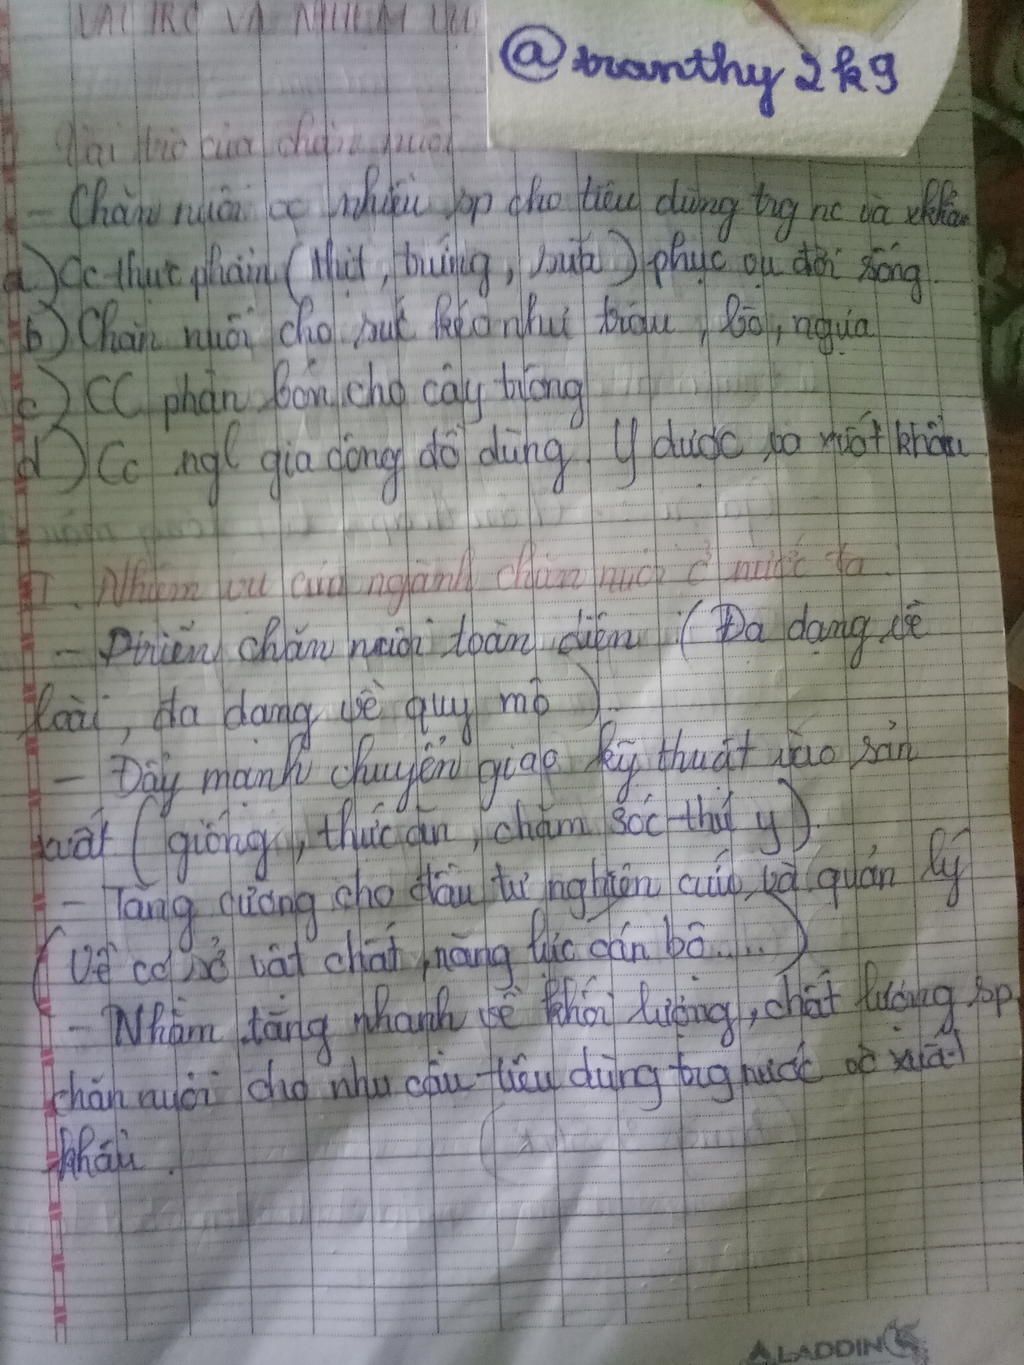 VAI TRÒ VÀ NHIỆM VỤ
@tranthy2k9
Vai trò của chăn nuôi
- Chăn nuôi cc nhiều sp cho tiêu dùng trg nc và xkhẩu
a) Cc thực phẩm (thịt, trứng, sữa) phục vụ đời sống
b) Chăn nuôi cho sức kéo như trâu, bò, ngựa
c) CC phân bón cho cây trồng
d) Cc ngl gia công đồ dùng. Y dược và xuất khẩu
I. Nhiệm vụ của ngành chăn nuôi ở nước ta
- Ptriển chăn nuôi toàn diện (Đa dạng về
loài, đa dạng về quy mô).
- Đẩy mạnh chuyển giao kỹ thuật vào sản
xuất (giống, thức ăn, chăm sóc thú y).
- Tăng cường cho đầu tư nghiên cứu và quản lý
(Về cơ sở vật chất, năng lực cán bộ.....)
- Nhằm tăng nhanh về khối lượng, chất lượng sp
chăn nuôi cho nhu cầu tiêu dùng trg nước và xuất
khẩu.
ALADDIN